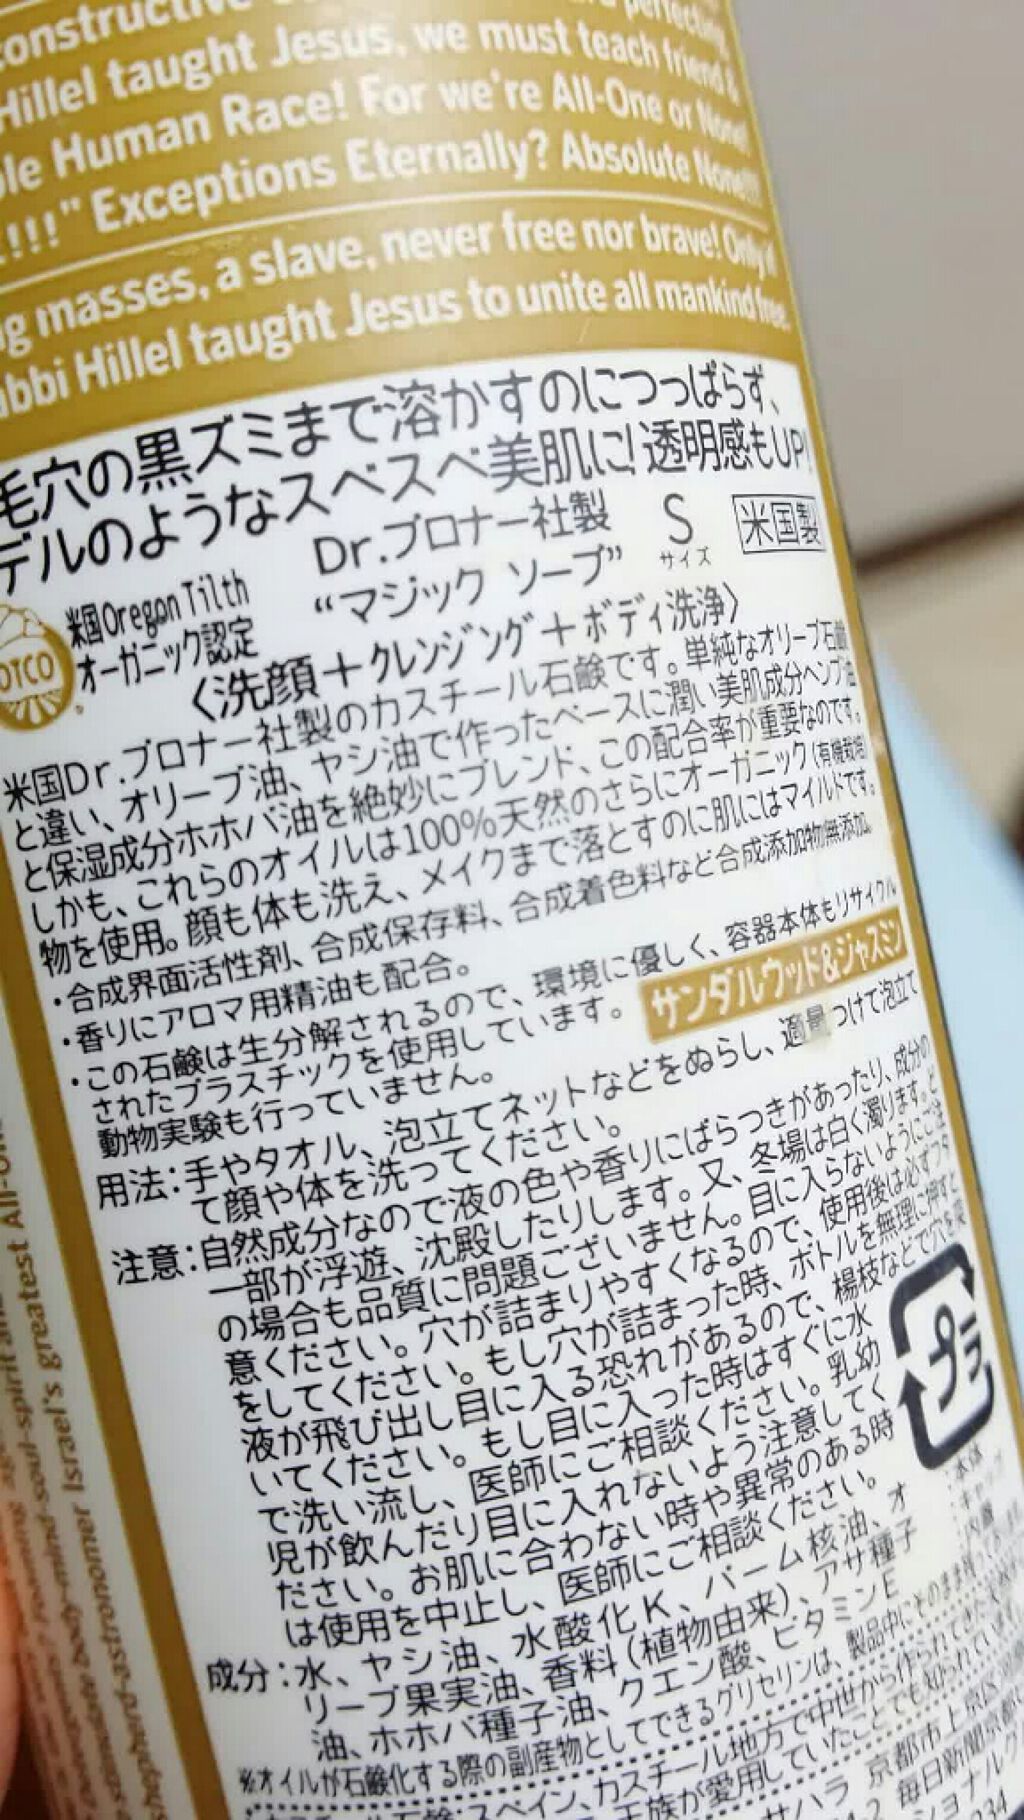 constructive
Hillel taught Jesus, we must teach friend &
Human Race! For we're All-One or None!
!!!" Exceptions Eternally? Absolute None!!!
masses, a slave, never free nor brave! Only if
Hillel taught Jesus to unite all mankind free.
毛穴の黒ズミまで溶かすのにつっぱらず、
デルのようなスベスベ美肌に!透明感もUP!
Dr.ブロナー社製
“マジック ソープ”
S
サイズ
米国製
OTCO
米国Oregon Tilth
オーガニック認定
〈洗顔+クレンジング+ボディ洗浄〉
米国Dr.ブロナー社製のカスチール石鹸です。単純なオリーブ石鹸
と違い、オリーブ油、ヤシ油で作ったベースに潤い美肌成分ヘンプ油
と保湿成分ホホバ油を絶妙にブレンド、この配合率が重要なのです。
しかも、これらのオイルは100%天然のさらにオーガニック(有機栽培)
物を使用。顔も体も洗え、メイクまで落とすのに肌にはマイルドです。
・合成界面活性剤、合成保存料、合成着色料など合成添加物無添加。
・香りにアロマ用精油も配合。
・この石鹸は生分解されるので、環境に優しく、容器本体もリサイクル
されたプラスチックを使用しています。
動物実験も行っていません。
サンダルウッド&ジャスミン
用法:手やタオル、泡立てネットなどをぬらし、適量つけて泡立て
て顔や体を洗ってください。
注意:自然成分なので液の色や香りにばらつきがあったり、成分の
一部が浮遊、沈殿したりします。又、冬場は白く濁ります。ど
の場合も品質に問題ございません。目に入らないようにご注
意ください。穴が詰まりやすくなるので、使用後は必ずフタ
をしてください。もし穴が詰まった時、ボトルを無理に押すと
液が飛び出し目に入る恐れがあるので、楊枝などで穴を突
いてください。もし目に入った時はすぐに水
で洗い流し、医師にご相談ください。乳幼
児が飲んだり目に入れないよう注意してく
ださい。お肌に合わない時や異常のある時
は使用を中止し、医師にご相談ください。
プラ
:本体
:キャップ
成分:水、ヤシ油、水酸化K、パーム核油、オ
リーブ果実油、香料(植物由来)、アサ種子
油、ホホバ種子油、クエン酸、ビタミンE
※オイルが石鹸化する際の副産物としてできるグリセリンは、製品中にそのまま
カスチール石鹸:スペイン、カスチール地方で中世から作られてきた
王族が愛用していたことでも知られてい
サハラ 京都市上京区
毎日新聞京都
greatest All-One
Israel's